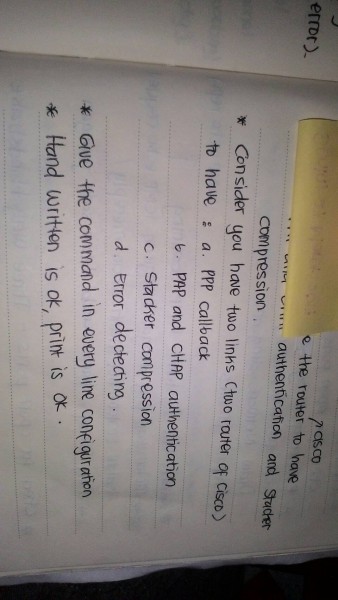 error).
cisco
e the router to have
authentication and Stacker
compression.
* Consider you have two links (two router of cisco)
to have : a. PPP callback
b. PAP and CHAP authentication
c. Stacker compression
d. Error dectecting.
* Give the command in every line configuration
* Hand written is ok, print is ok.